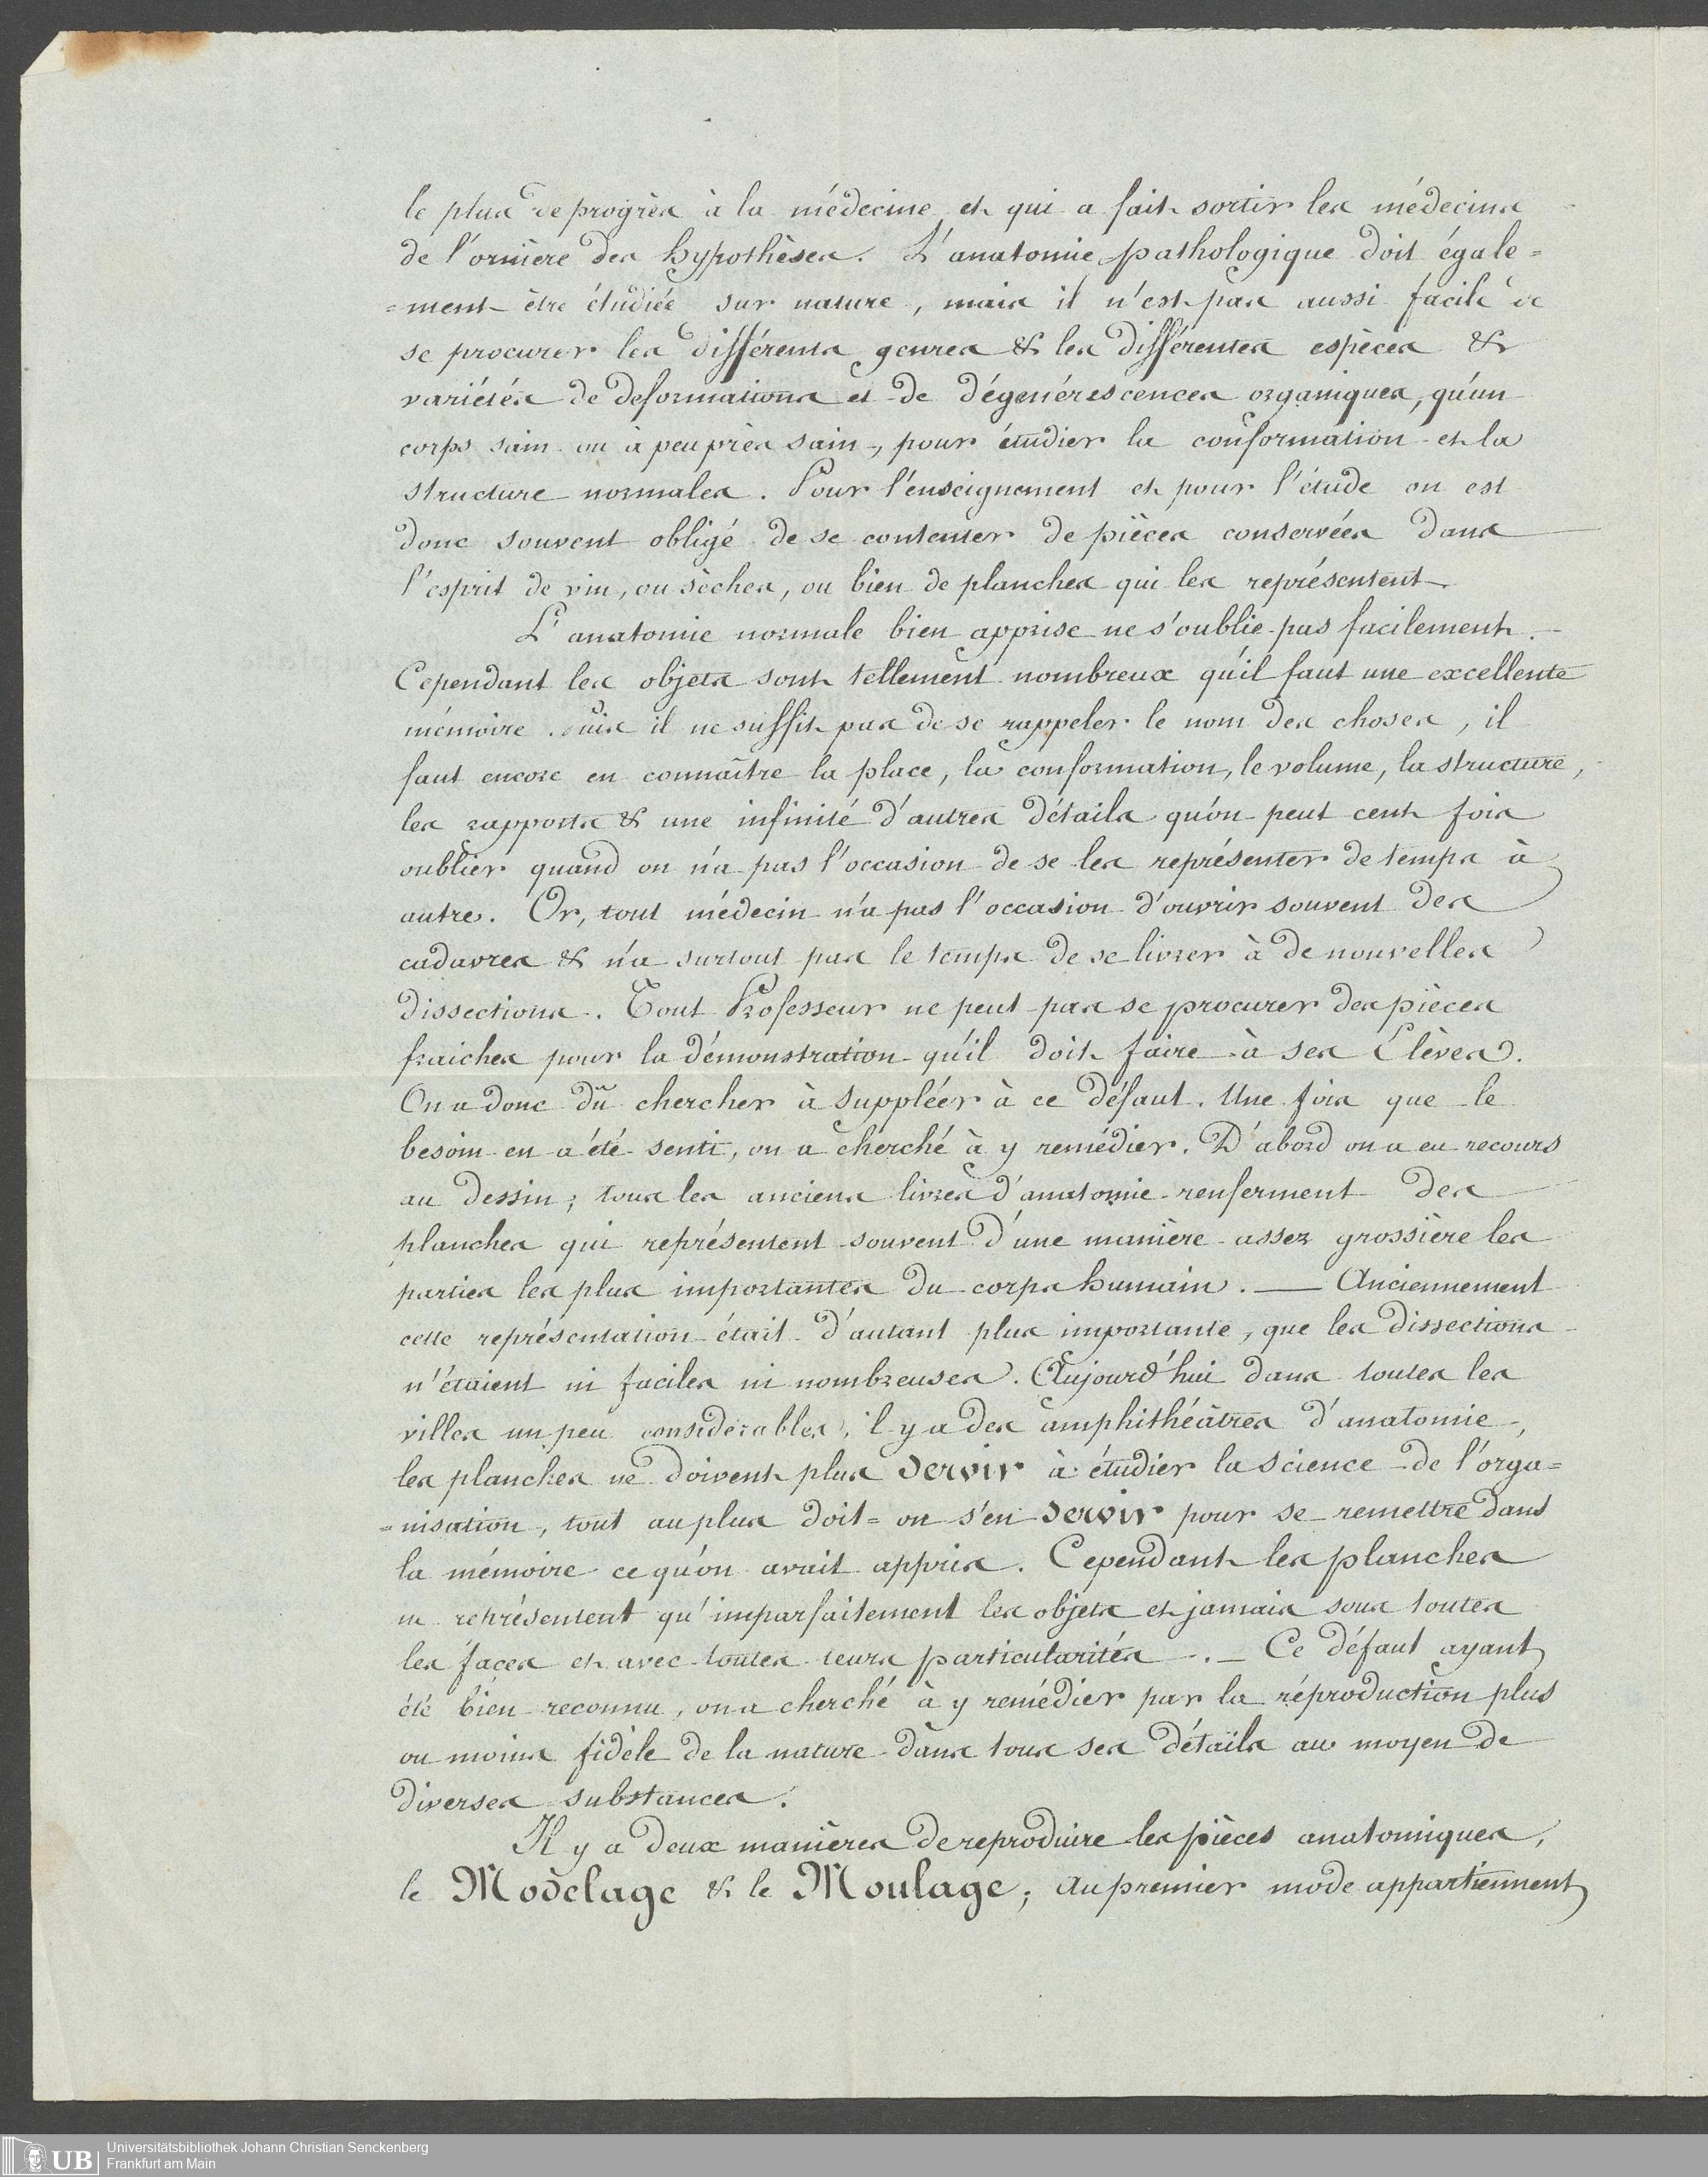 le plus de progrès à la médecine et qui a fait sortir les médecins
de l'ornière des hypothèses. L'anatomie pathologique doit égale=
=ment être étudiée sur nature, mais il n'est pas aussi facile de
se procurer les différents genres & les différentes espèces &
variétés de deformations et de dégenérescences organiques, qu'un
corps sain ou à peu près sain, pour étudier la conformation et la
structure normales. Pour l'enseignement et pour l'étude on est
donc souvent obligé de se contenter de pièces conservées dans
l'esprit de vin, ou sèches, ou bien de planches qui les représentent
L'anatomie normale bien apprise ne s'oublie pas facilement. —
Cependant les objets sont tellement nombreux qu'il faut une excellente
mémoire. Puis il ne suffit pas de se rappeler le nom des choses, il
faut encore en connaître la place, la conformation, le volume, la structure,
les rapports & une infinité d'autres détails qu'on peut cent fois
oublier quand on n'a pas l'occasion de se les représenter de temps à
autre. Or, tout médecin n'a pas l'occasion d'ouvrir souvent des
cadavres & n'a surtout pas le temps de se livrer à de nouvelles
dissections. Tout Professeur ne peut pas se procurer des pièces
fraiches pour la démonstration qu'il doit faire à ses Élèves.
On a donc dû chercher à suppléer à ce défaut. Une fois que le
besoin en a été senti, on a cherché à y remédier. D'abord on a eu recours
au dessin; tous les anciens livres d'anatomie renferment des
planches qui représentent souvent d'une manière assez grossière les
parties les plus importantes du corps humain. — Anciennement
cette représentation était d'autant plus importante, que les dissections
n'étaient ni faciles ni nombreuses. Aujourd'hui dans toutes les
villes un peu considerables, il y a des amphithéâtres d'anatomie,
les planches ne doivent plus servir à étudier la science de l'orga=
=nisation, tout au plus doit=on s'en servir pour se remettre dans
la mémoire ce qu'on avait appris. Cependant les planches
ne représentent qu'imparfaitement les objets et jamais sous toutes
les faces et avec toutes leurs particularités. — Ce défaut ayant
été bien reconnu, on a cherché à y remédier par la réproduction plus
ou moins fidèle de la nature dans tous ses détails au moyen de
diverses substances.
Il y a deux manières de reproduire les pièces anatomiques,
le Modelage & le Moulage; au premier mode appartiennent
UB
Universitätsbibliothek Johann Christian Senckenberg
Frankfurt am Main